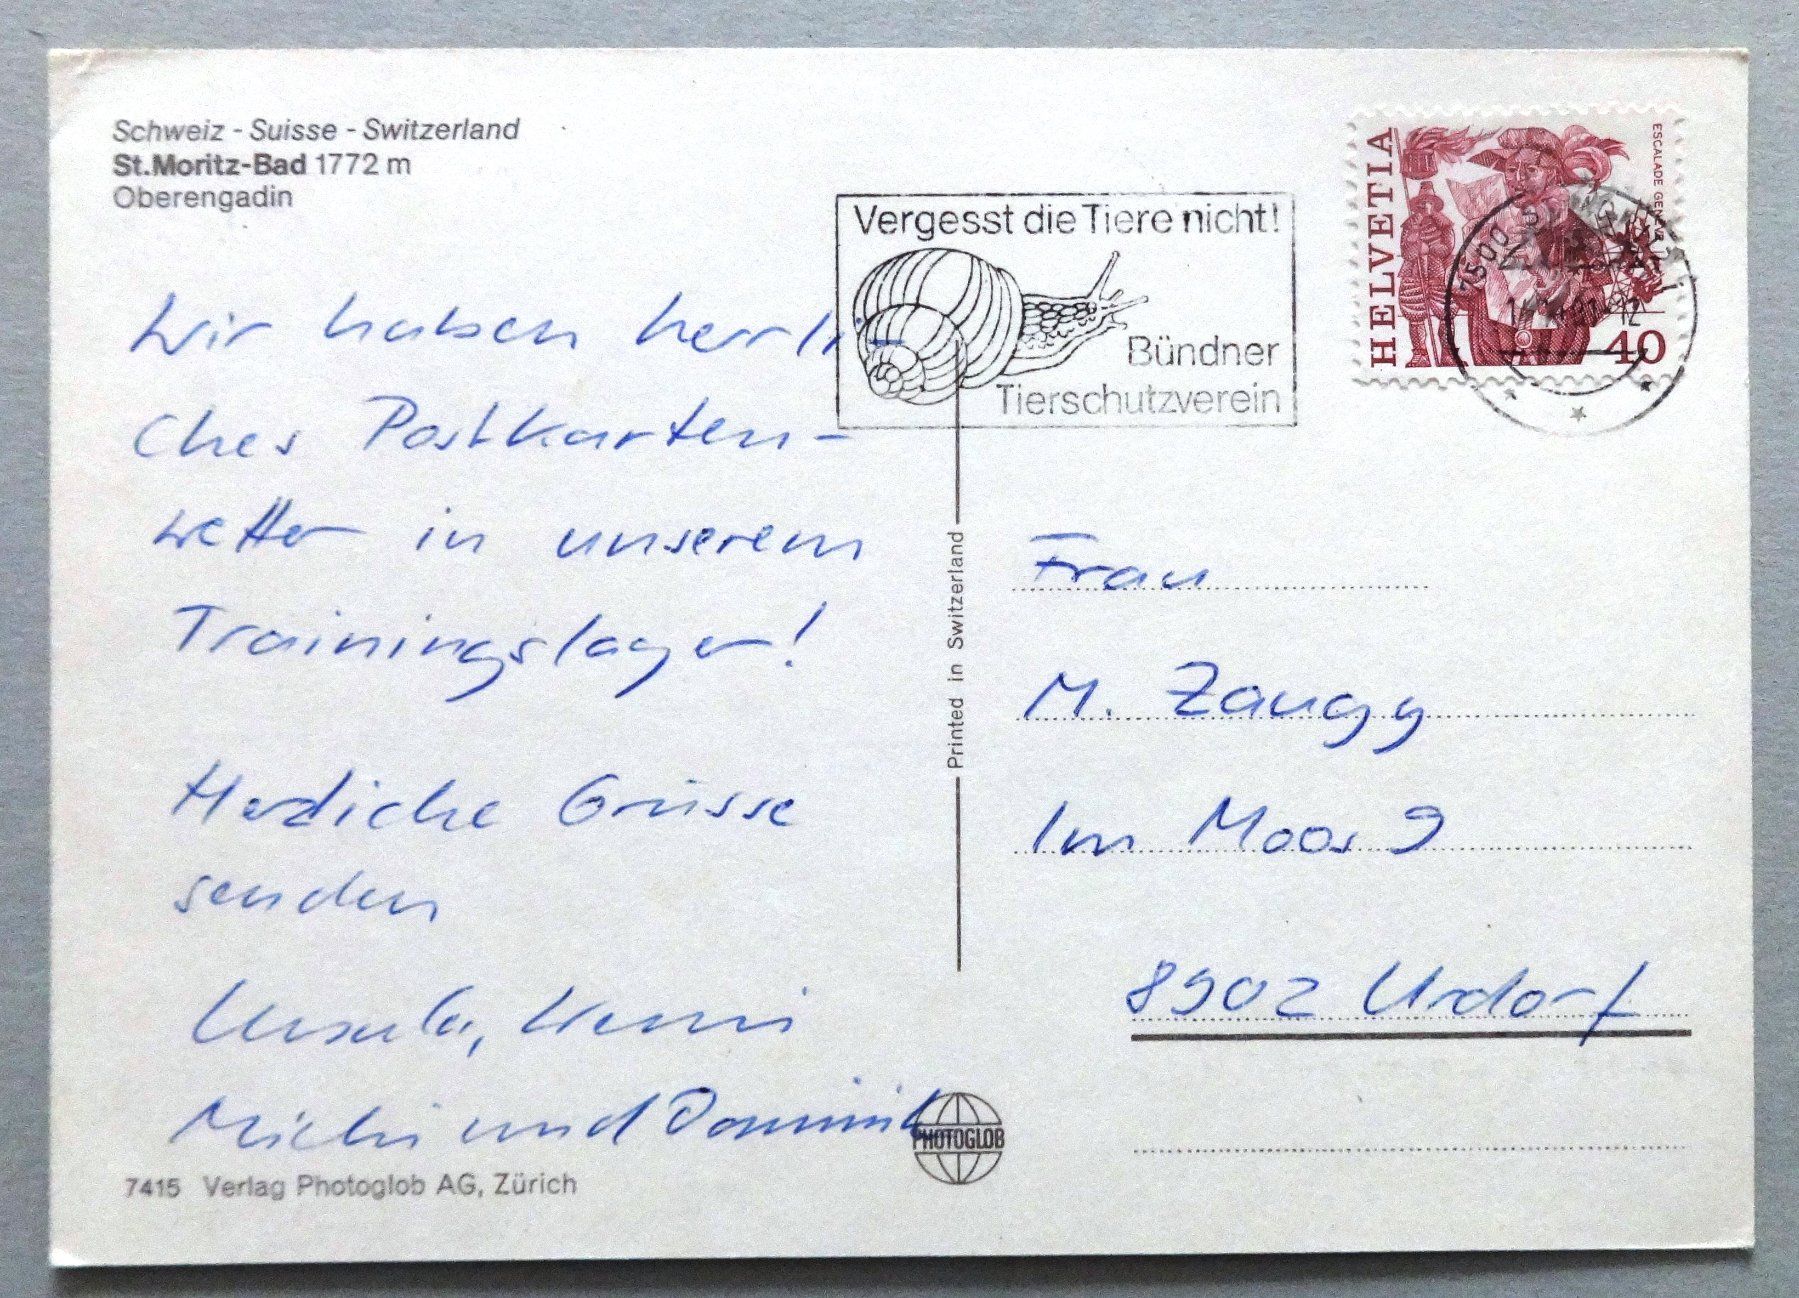 Schweiz - Suisse - Switzerland
St.Moritz-Bad 1772 m
Oberengadin
Wir haben herrli-
ches Postkarten-
wetter in unserem
Trainingslager!
Herzliche Grüsse
senden
Ursula,
Michi und Dominik
7415 Verlag Photoglob AG, Zürich
PHOTOGLOB
Printed in Switzerland
Vergesst die Tiere nicht!
Bündner
Tierschutzverein
HELVETIA
ESCALADE GENÈVE
40
7500
12
Frau
M. Zaugg
Im Moos 9
8902 Urdorf